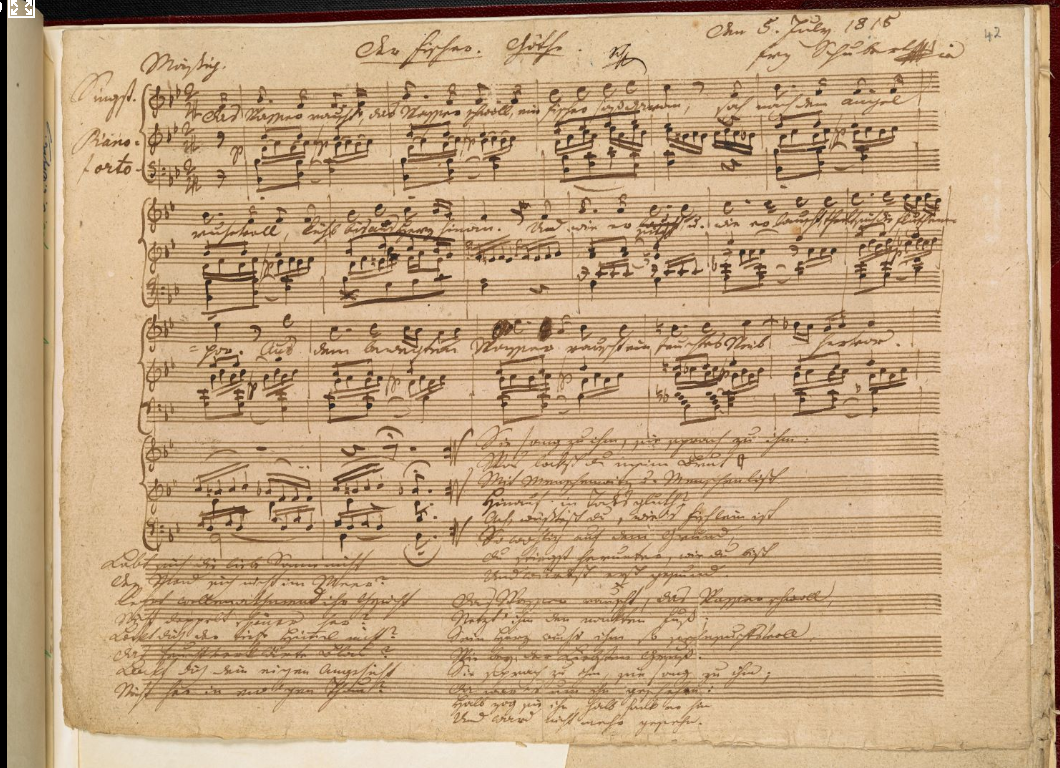 42
Den 5. July 1815
Der Fischer. Göthe.
frz Schubert
Mäßig.
Singst.
Das Wasser rauscht, das Wasser schwoll, ein Fischer saß daran, sah nach dem Angel
Piano-
forte
ruhevoll, kühl bis ans Herz hinan. Und wie er u. wie er lauscht theilt sich die Fluth em
=por. Aus dem bewegten Wasser rauscht ein feuchtes Weib hervor.
Sie sang zu ihm, sie sprach zu ihm:
Was lockst du meine Brut
Mit Menschenwitz u. Menschenlist
Hinauf in Todesglut?
Ach wüßtest du, wie's Fischlein ist
So wohlig auf dem Grund,
Du stiegst herunter, wie du bist
Und würdest erst gesund.
Labt sich die liebe Sonne nicht
Der Mond sich nicht im Meer?
Kehrt wellenathmend ihr Gesicht
Nicht doppelt schöner her?
Lockt dich der tiefe Himmel nicht?
Das feuchtverklärte Blau?
Lockt dich dein eigen Angesicht
Nicht her in ewgen Thau?
Das Wasser rauscht, das Wasser schwoll,
Netzt ihm den nackten Fuß;
Sein Herz wuchs ihm so sehnsuchtsvoll
Wie bey der Liebsten Gruß.
Sie sprach zu ihm sie sang zu ihm;
Da war's um ihn geschehen:
Halb zog sie ihn, halb sank er hin
Und ward nicht mehr gesehn.